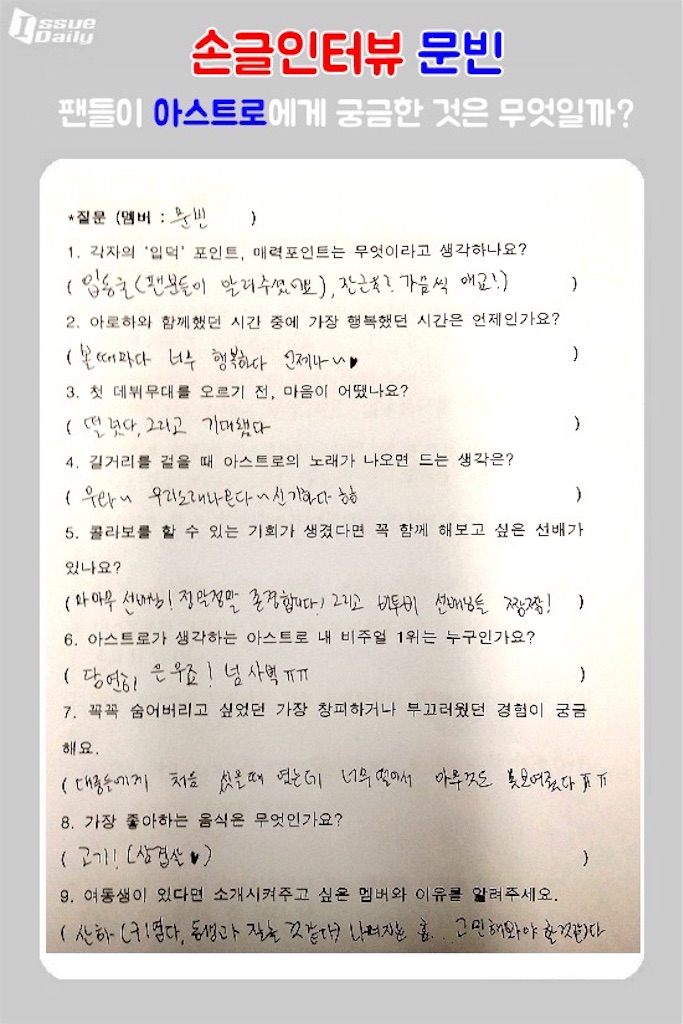 Issue
Daily
손글인터뷰 문빈
팬들이 아스트로에게 궁금한 것은 무엇일까?
*질문 (멤버 : 문빈 )
1. 각자의 '입덕' 포인트, 매력포인트는 무엇이라고 생각하나요?
( 입동굴(팬분들이 알려주셨어요), 잔근육? 가끔씩 애교!) )
2. 아로하와 함께했던 시간 중에 가장 행복했던 시간은 언제인가요?
( 볼때마다 너무 행복하다 언제나~♥ )
3. 첫 데뷔무대를 오르기 전, 마음이 어땠나요?
( 떨렸다, 그리고 기대됐다 )
4. 길거리를 걸을 때 아스트로의 노래가 나오면 드는 생각은?
( 우와~ 우리노래나온다~신기하다 ㅎㅎ )
5. 콜라보를 할 수 있는 기회가 생겼다면 꼭 함께 해보고 싶은 선배가
있나요?
( 마마무 선배님! 정말정말 존경합니다! 그리고 비투비 선배님들 짱짱! )
6. 아스트로가 생각하는 아스트로 내 비주얼 1위는 누구인가요?
( 당연히 은우죠! 넘사벽 ㅠㅠ )
7. 꼭꼭 숨어버리고 싶었던 가장 창피하거나 부끄러웠던 경험이 궁금
해요.
( 대중들에게 처음 섰을때 였는데 너무떨려서 아무것도 못보여줬다 ㅠㅠ
8. 가장 좋아하는 음식은 무엇인가요?
( 고기! (삼겹살♥) )
9. 여동생이 있다면 소개시켜주고 싶은 멤버와 이유를 알려주세요.
( 산하 (귀엽다, 동생과 잘놀 것같다) 나머지는 흠.. 고민해봐야 할것같)다